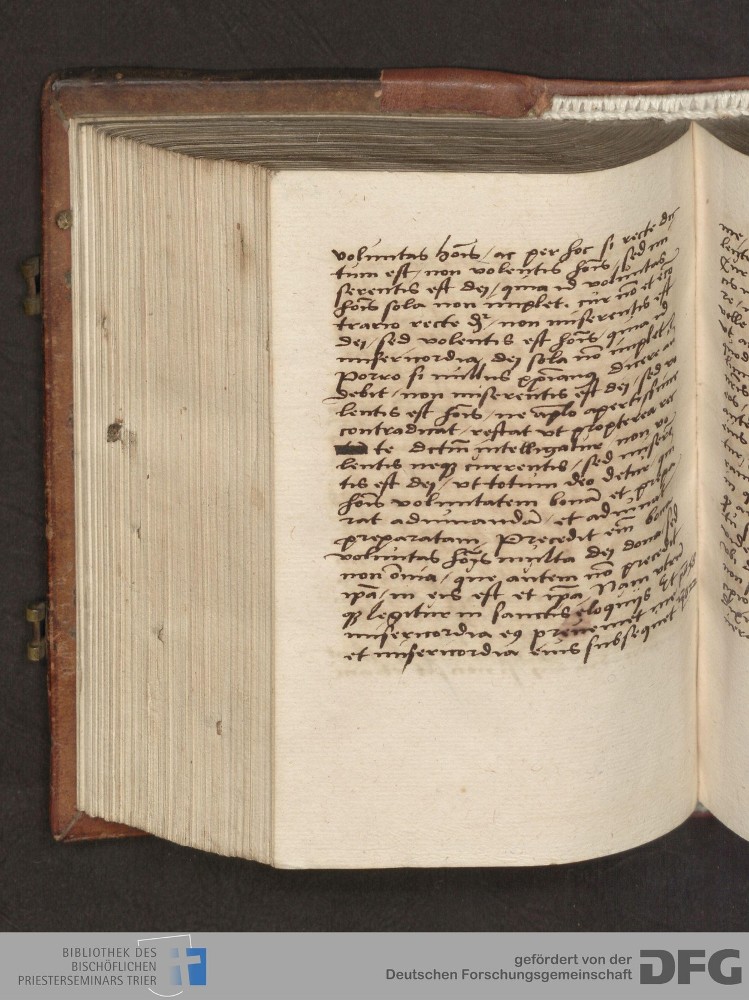 voluntas hoīs / ac per hoc si recte dic
tum est / non volentis hoīs / sed mi
serentis est dei / quia id voluntas
hoīs sola non implet. cur nō et eco
trario recte dr̄ / non miserentis est
dei / sed volentis est hoīs / quia id
misericordia dei sola nō implet /
Porro si nullus xpianus dicere au
debit / non miserentis est dei / sed vo
lentis est hoīs / ne aplo apertissime
contradicat / restat vt propterea rec
te dictū intelligatur / non vo
lentis neqȝ currentis / sed miserē
tis est dei / vt totum deo detur / qui
hoīs voluntatem bonā et prepa
rat adiuuandā / et adiuuat
preparatam. Precedit eīm bona
voluntas hoīs multa dei dona / sed
non ōmia / que autem nō precedit
ipa / in eis est et ipa. Nam vtrū
qȝ legitur in sanctis eloquijs Et
misericordia eiꝰ preueniet me
et misericordia eius subsequet
BIBLIOTHEK DES
BISCHÖFLICHEN
PRIESTERSEMINARS TRIER
gefördert von der
Deutschen Forschungsgemeinschaft
DFG